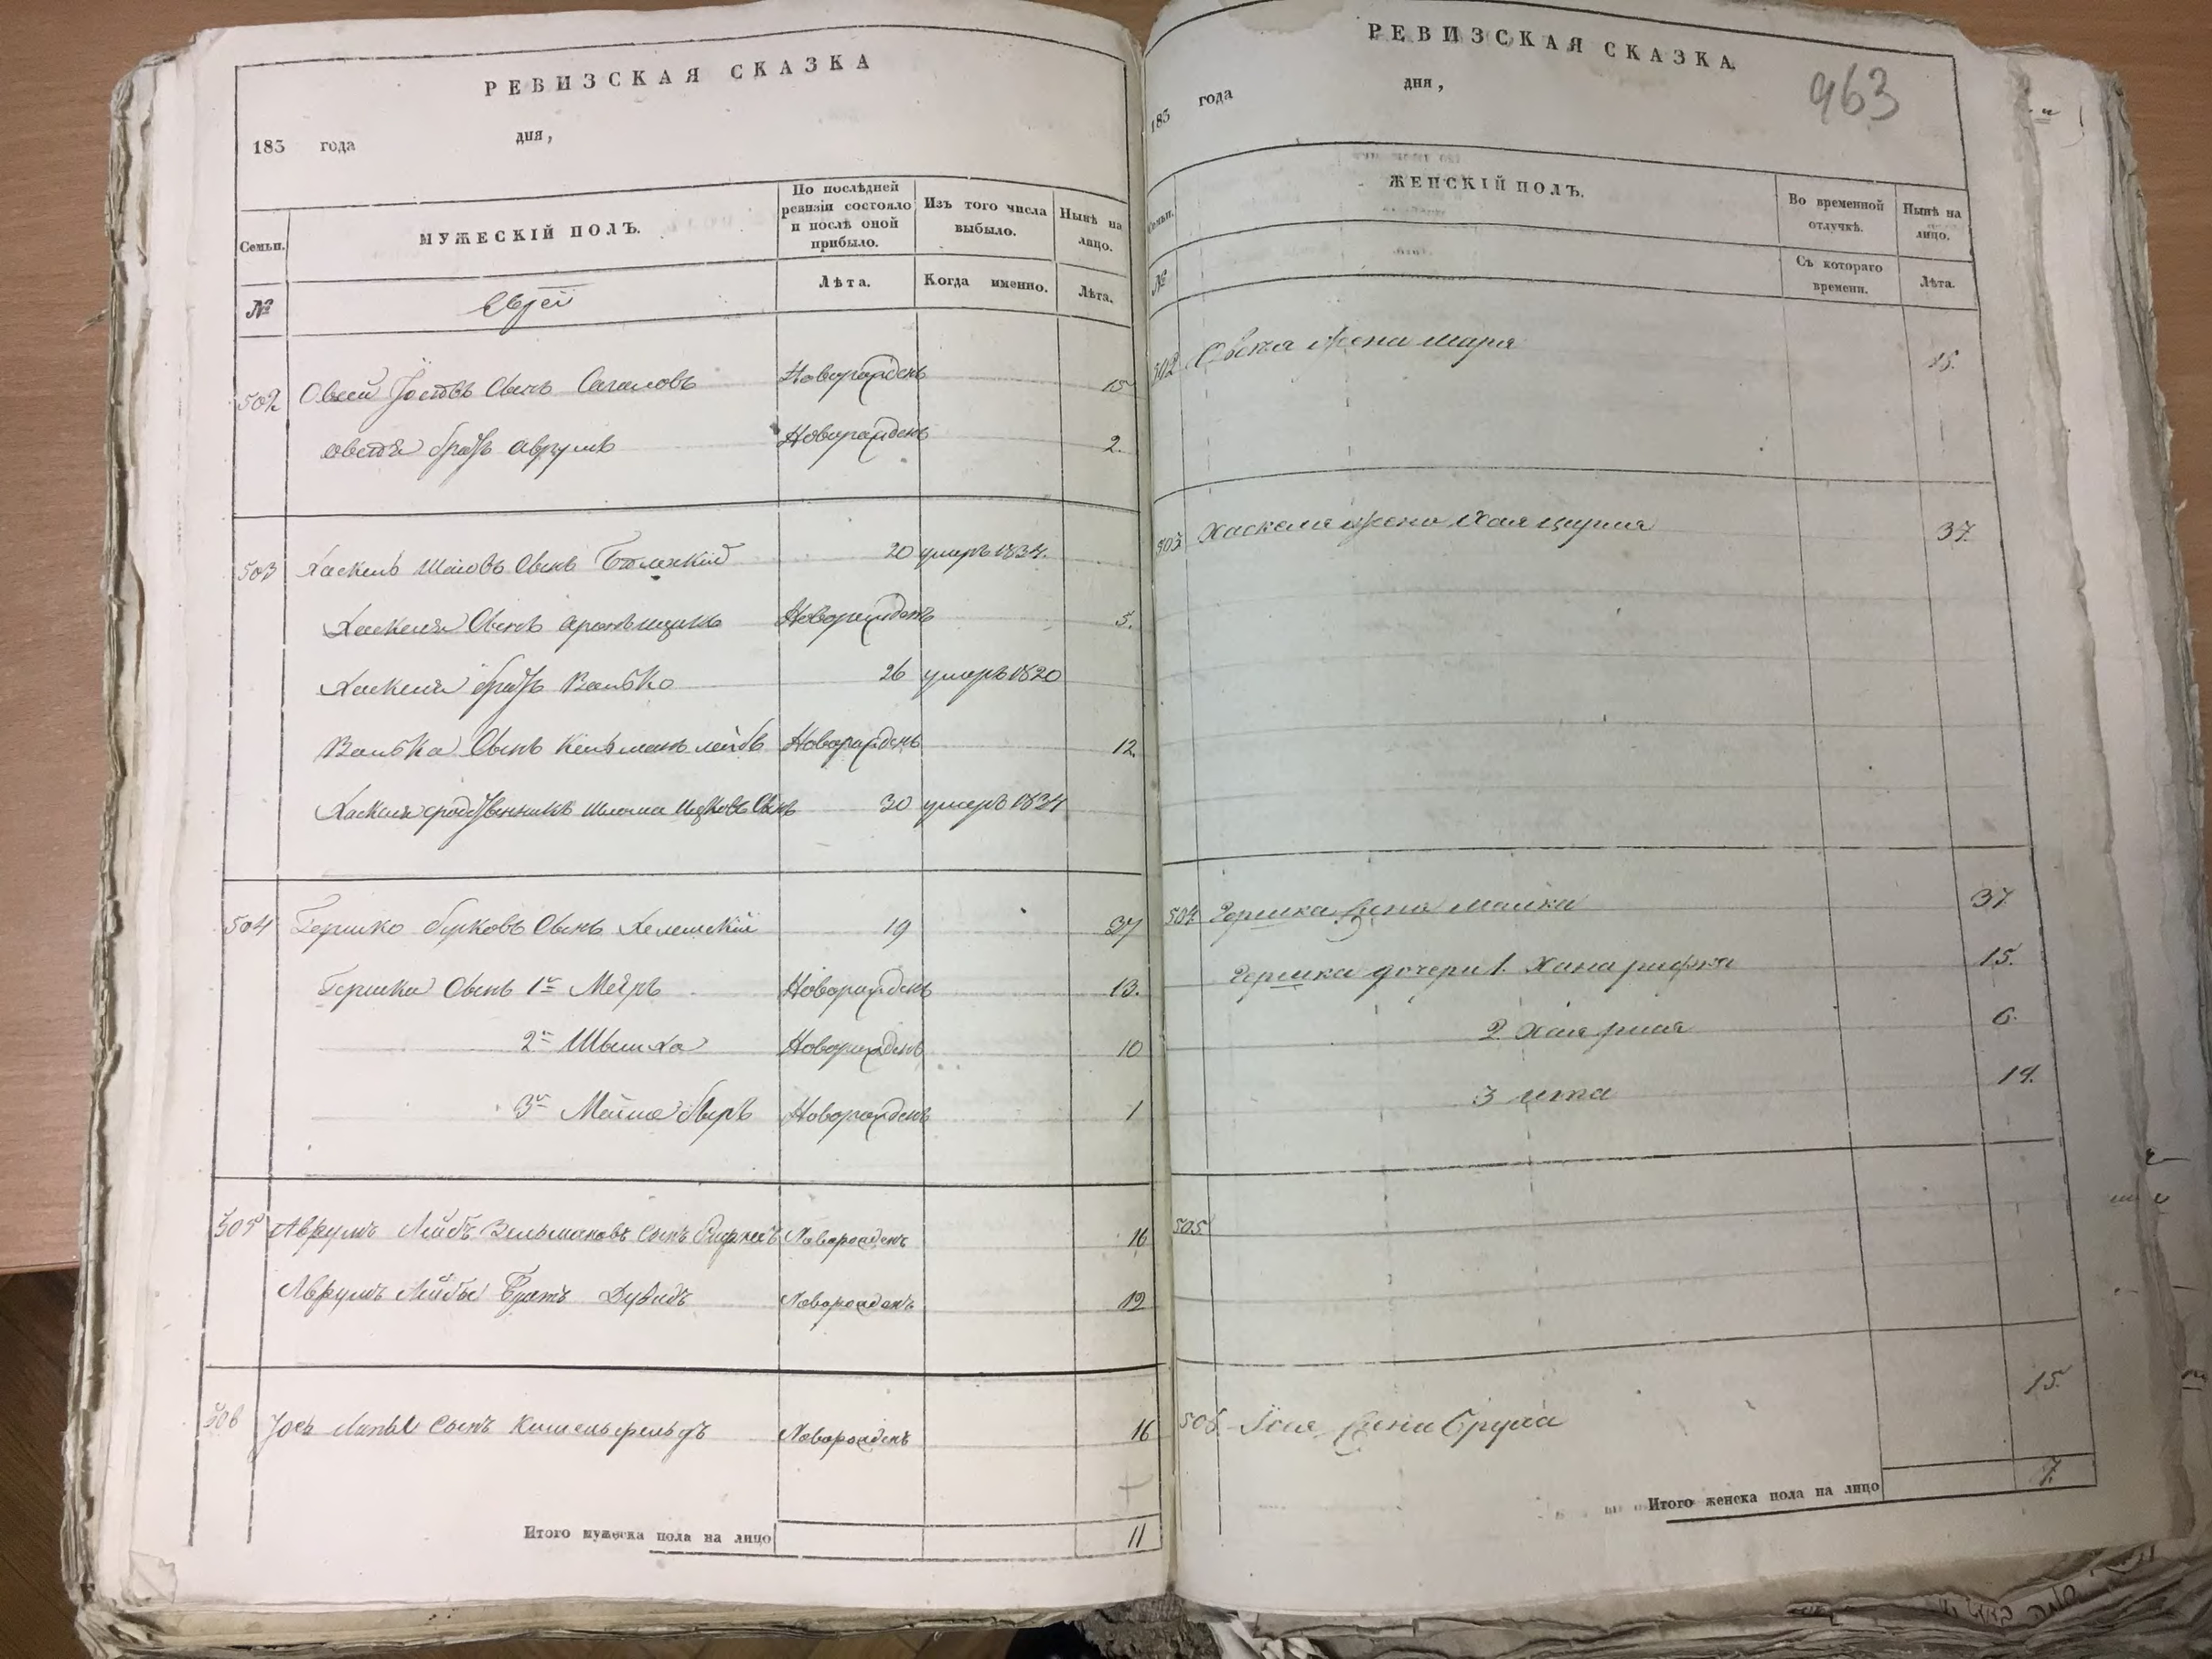 РЕВИЗСКАЯ СКАЗКА
183 года дня,
Семьи. МУЖЕСКІЙ ПОЛЪ. По послѣдней ревизіи состояло и послѣ оной прибыло. Изъ того числа выбыло. Нынѣ на лицо.
№ Евреи Лѣта. Когда именно. Лѣта.
502 Овсей Іосіовъ Сынъ Сагаловъ Новорожденъ 15
Овсѣя братъ Аврумъ Новорожденъ 2.
503 Хаскель Шаіовъ Сынъ 20 умеръ 1834.
Хаскеля Сынъ Новорожденъ 5.
Хаскеля братъ Волько 26 умеръ 1820
Волька Сынъ Кельманъ лейбъ Новорожденъ 12.
Хаскеля сродственникъ Шлома Ицковъ Сынъ 30 умеръ 1834
504 Гершко Берковъ Сынъ 19 37
Гершка Сынъ 1й Меиръ Новорожденъ 13.
2й Новорожденъ 10
3й Беръ Новорожденъ 1
505 Аврумъ Лейбъ Зельмановъ Сынъ Новорожденъ 16
Аврумъ Лейбы Братъ Дувидъ Новорожденъ 12
506 Іось Сынъ Кишельфельдъ Новорожденъ 16
Итого мужеска пола на лицо 11
РЕВИЗСКАЯ СКАЗКА.
963
183 года дня,
Семьи. ЖЕНСКІЙ ПОЛЪ. Во временной отлучкѣ. Нынѣ на лицо.
№ Съ котораго времени. Лѣта.
502 Овсѣя жена Мара
503 Хаскеля жена Хая 37
504 Гершка жена Малка 37
Гершка дочери 1. Хана рифка 15.
2. Хая 6.
3 ита
505
506 Іося жена Сруля 15.
Итого женска пола на лицо 7.